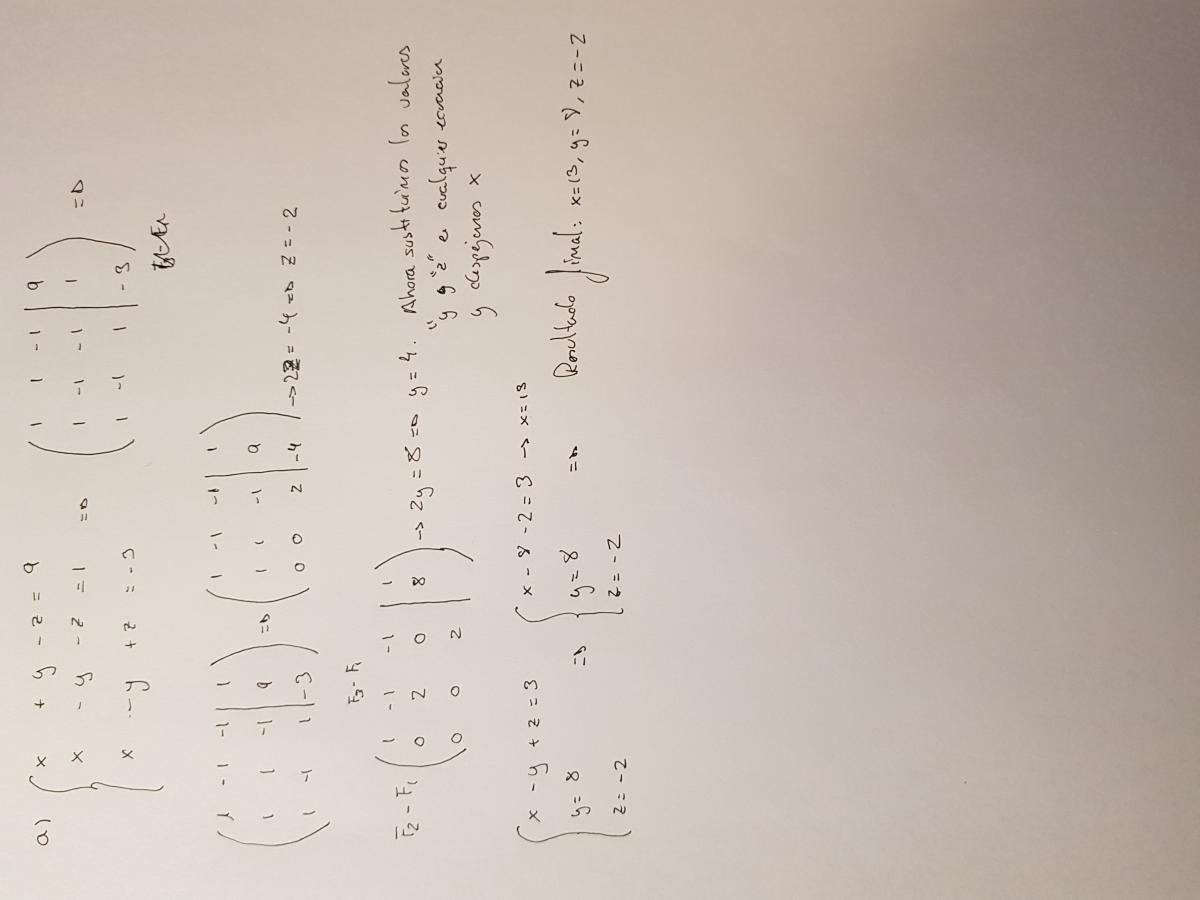 a) { x + y - z = 9 ( 1 1 -1 | 9 )
x - y - z = 1 => ( 1 -1 -1 | 1 ) =>
x - y + z = -3 ( 1 -1 1 | -3 )
( 1 -1 -1 | 1 ) ( 1 -1 -1 | 1 )
( 1 1 -1 | 9 ) => ( 1 1 -1 | 9 )
( 1 -1 1 | -3 ) ( 0 0 2 | -4 ) -> 2z = -4 => z = -2
F3 - F1
F2 - F1 ( 1 -1 -1 | 1 )
( 0 2 0 | 8 ) -> 2y = 8 => y = 4. Ahora sustituimos los valores
( 0 0 2 | "y y "z" en cualquier ecuación
y despejamos x
{ x - y + z = 3 { x - 8 - 2 = 3 -> x = 13
y = 8 => y = 8 => Resultado final: x=13, y=8, z=-2
z = -2 z = -2